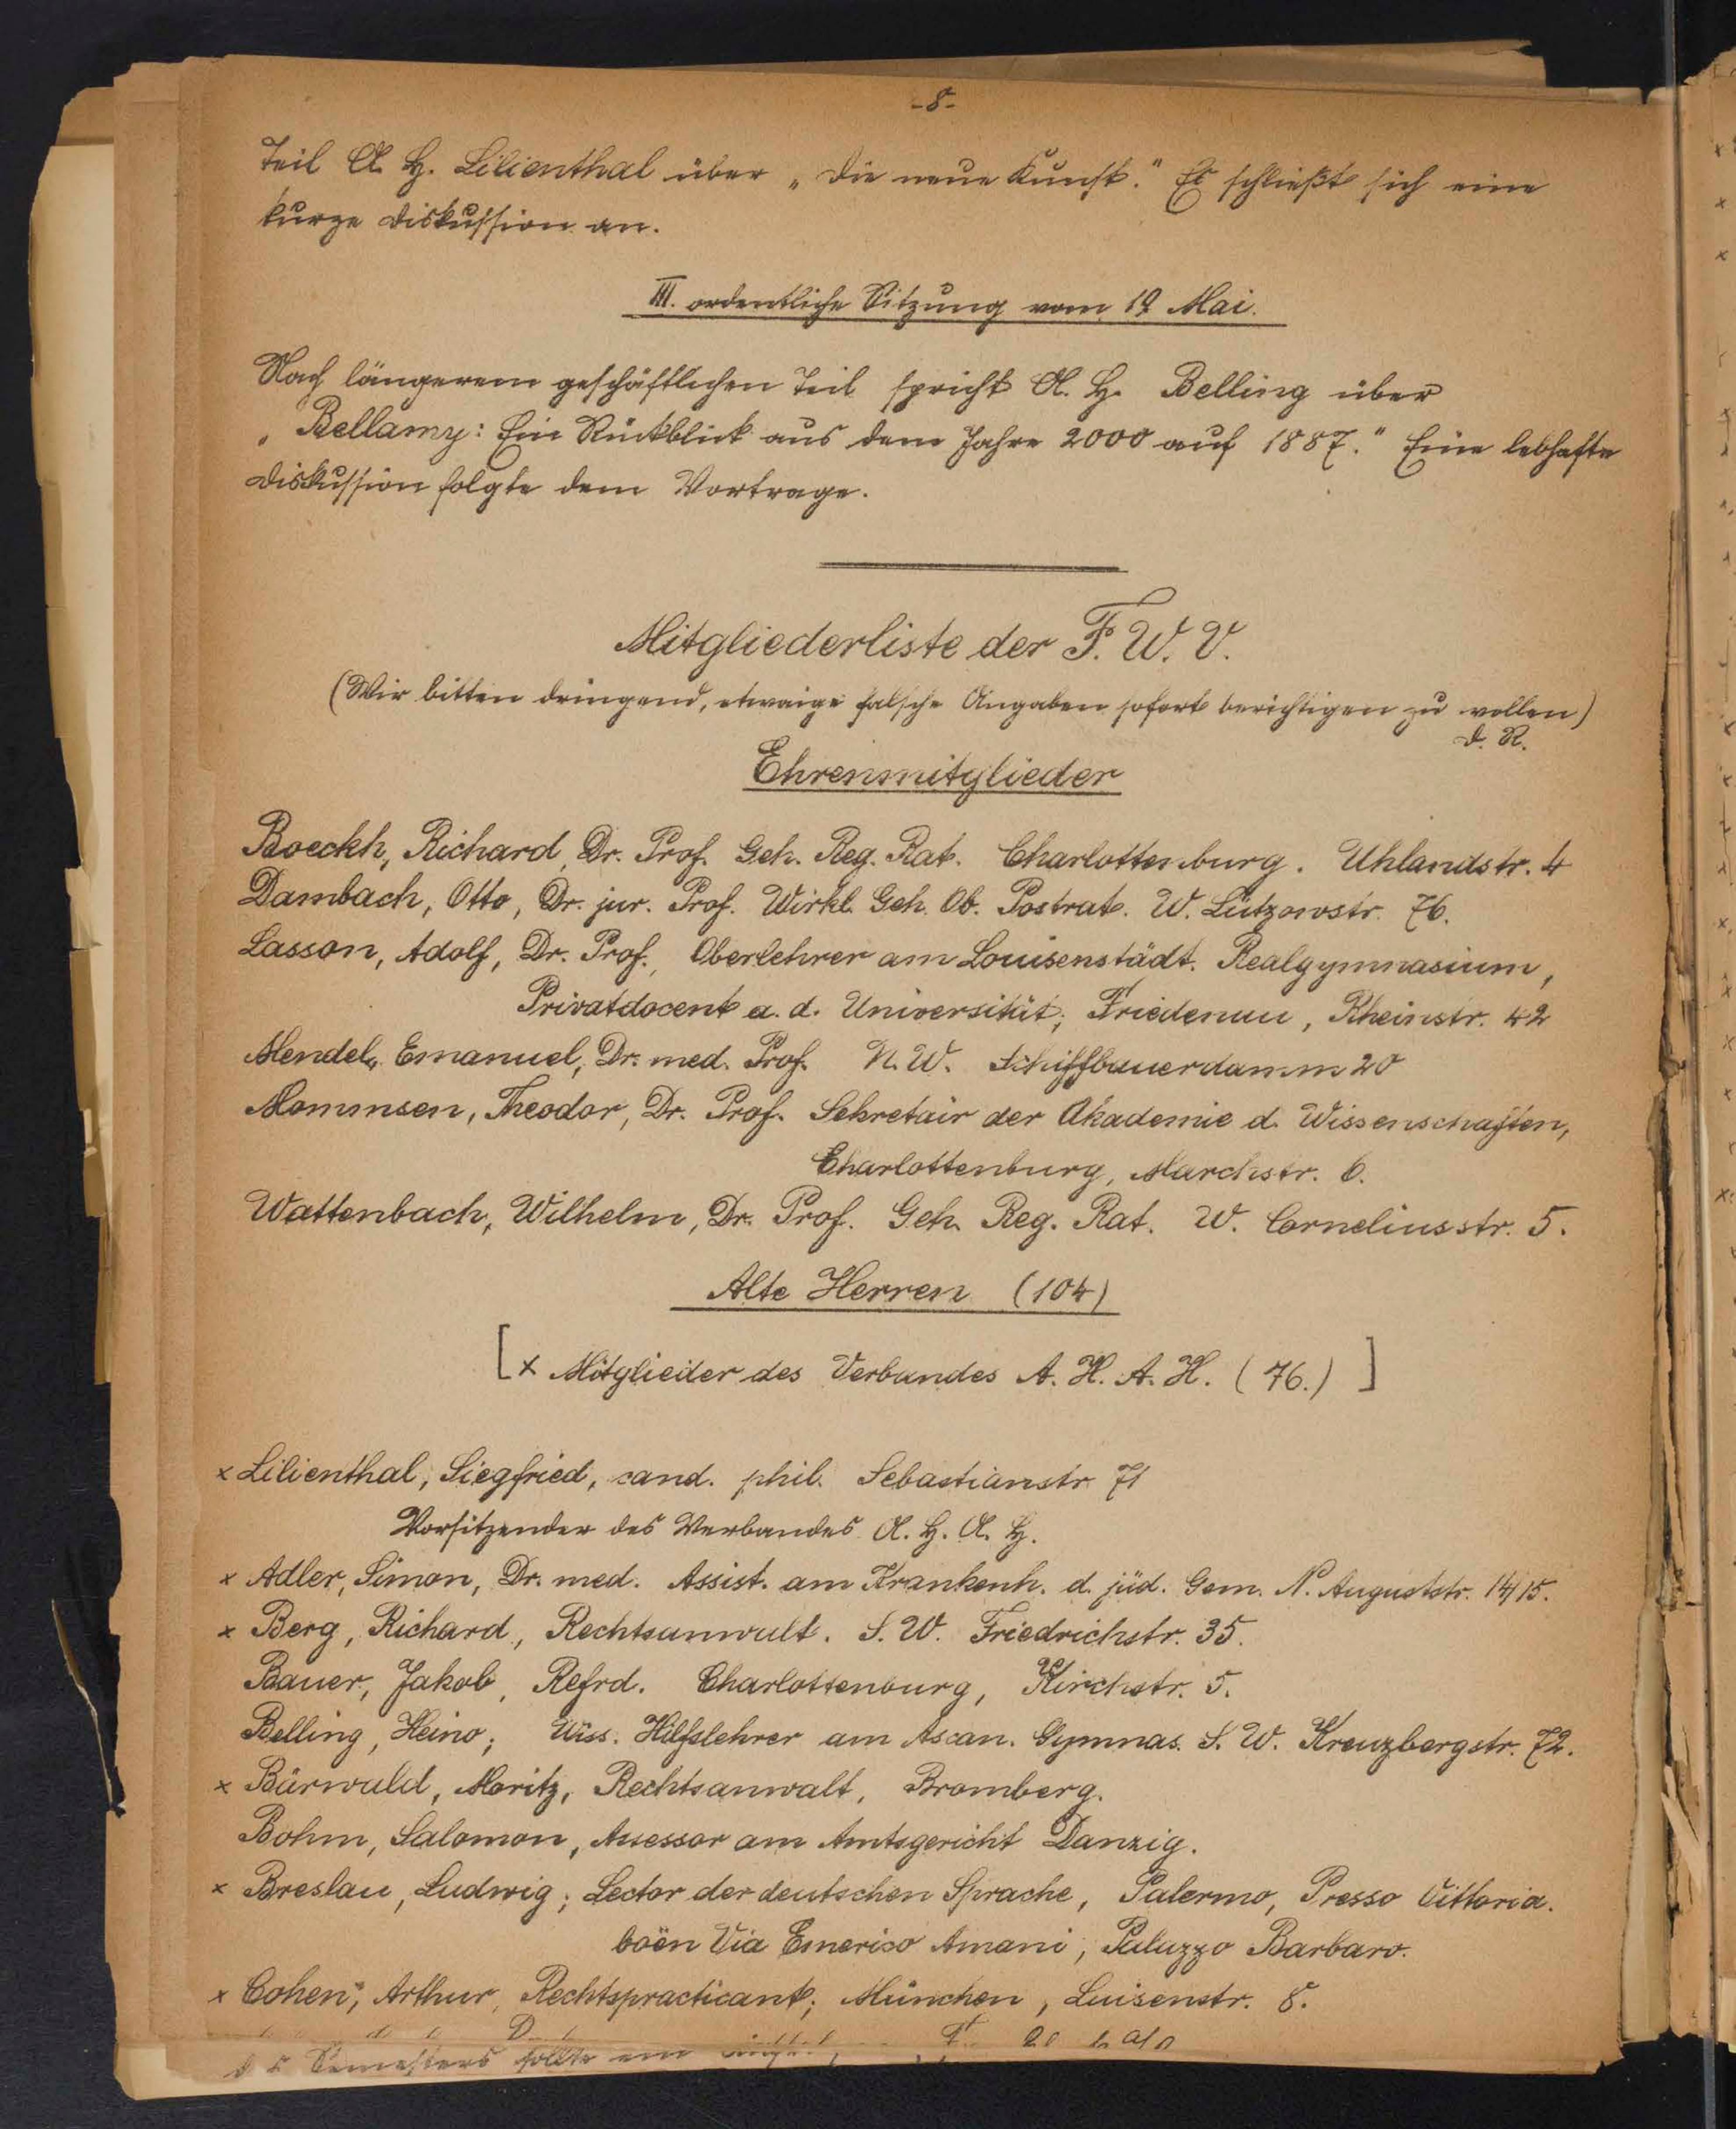 -8-
Teil A. H. Lilienthal über „Die neue Kunst.“ Es schließt sich eine
kurze Diskussion an.
III. ordentliche Sitzung vom 19 Mai.
Nach längerem geschäftlichen Teil spricht A. H. Belling über
„Bellamy: Ein Rückblick aus dem Jahre 2000 auf 1887.“ Eine lebhafte
Diskussion folgte dem Vortrage.
Mitgliederliste der F. W. V.
(Wir bitten dringend, etwaige falsche Angaben sofort berichtigen zu wollen)
D. R.
Ehrenmitglieder
Boeckh, Richard, Dr. Prof. Geh. Reg. Rat. Charlottenburg. Uhlandstr. 4
Dambach, Otto, Dr. jur. Prof. Wirkl. Geh. Ob. Postrat. W. Lützowstr. 76.
Lasson, Adolf, Dr. Prof., Oberlehrer am Louisenstädt. Realgymnasium,
Privatdocent a. d. Universität; Friedenau, Rheinstr. 42
Mendel, Emanuel, Dr. med. Prof. N. W. Schiffbauerdamm 20
Mommsen, Theodor, Dr. Prof. Sekretair der Akademie d. Wissenschaften,
Charlottenburg, Marchstr. 6.
Wattenbach, Wilhelm, Dr. Prof. Geh. Reg. Rat. W. Corneliusstr. 5.
Alte Herren (104)
[x Mitglieder des Verbandes A. H. A. H. (76.)]
x Lilienthal, Siegfried, cand. phil. Sebastianstr 71
Vorsitzender des Verbandes A. H. A. H.
x Adler, Simon, Dr. med. Assist. am Krankenh. d. jüd. Gem. N. Auguststr. 14/15.
x Berg, Richard, Rechtsanwalt. S. W. Friedrichstr. 35.
Bauer, Jakob, Refrd. Charlottenburg, Kirchstr. 5.
Belling, Heino; Wiss. Hilfslehrer am Ascan. Gymnas. S. W. Kreuzbergstr. 72.
x Bärwald, Moritz, Rechtsanwalt, Bromberg.
Bohm, Salomon, Assessor am Amtsgericht Danzig.
x Breslau, Ludwig; Lector der deutschen Sprache, Palermo, Presso Vittoria.
boën Via Emerico Amani, Palazzo Barbaro.
x Cohen, Arthur, Rechtspracticant; München, Luisenstr. 8.
Semesters sollte